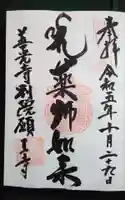 奉拝
令和五年十月二十九日
薬師如来
善光寺別院願王寺